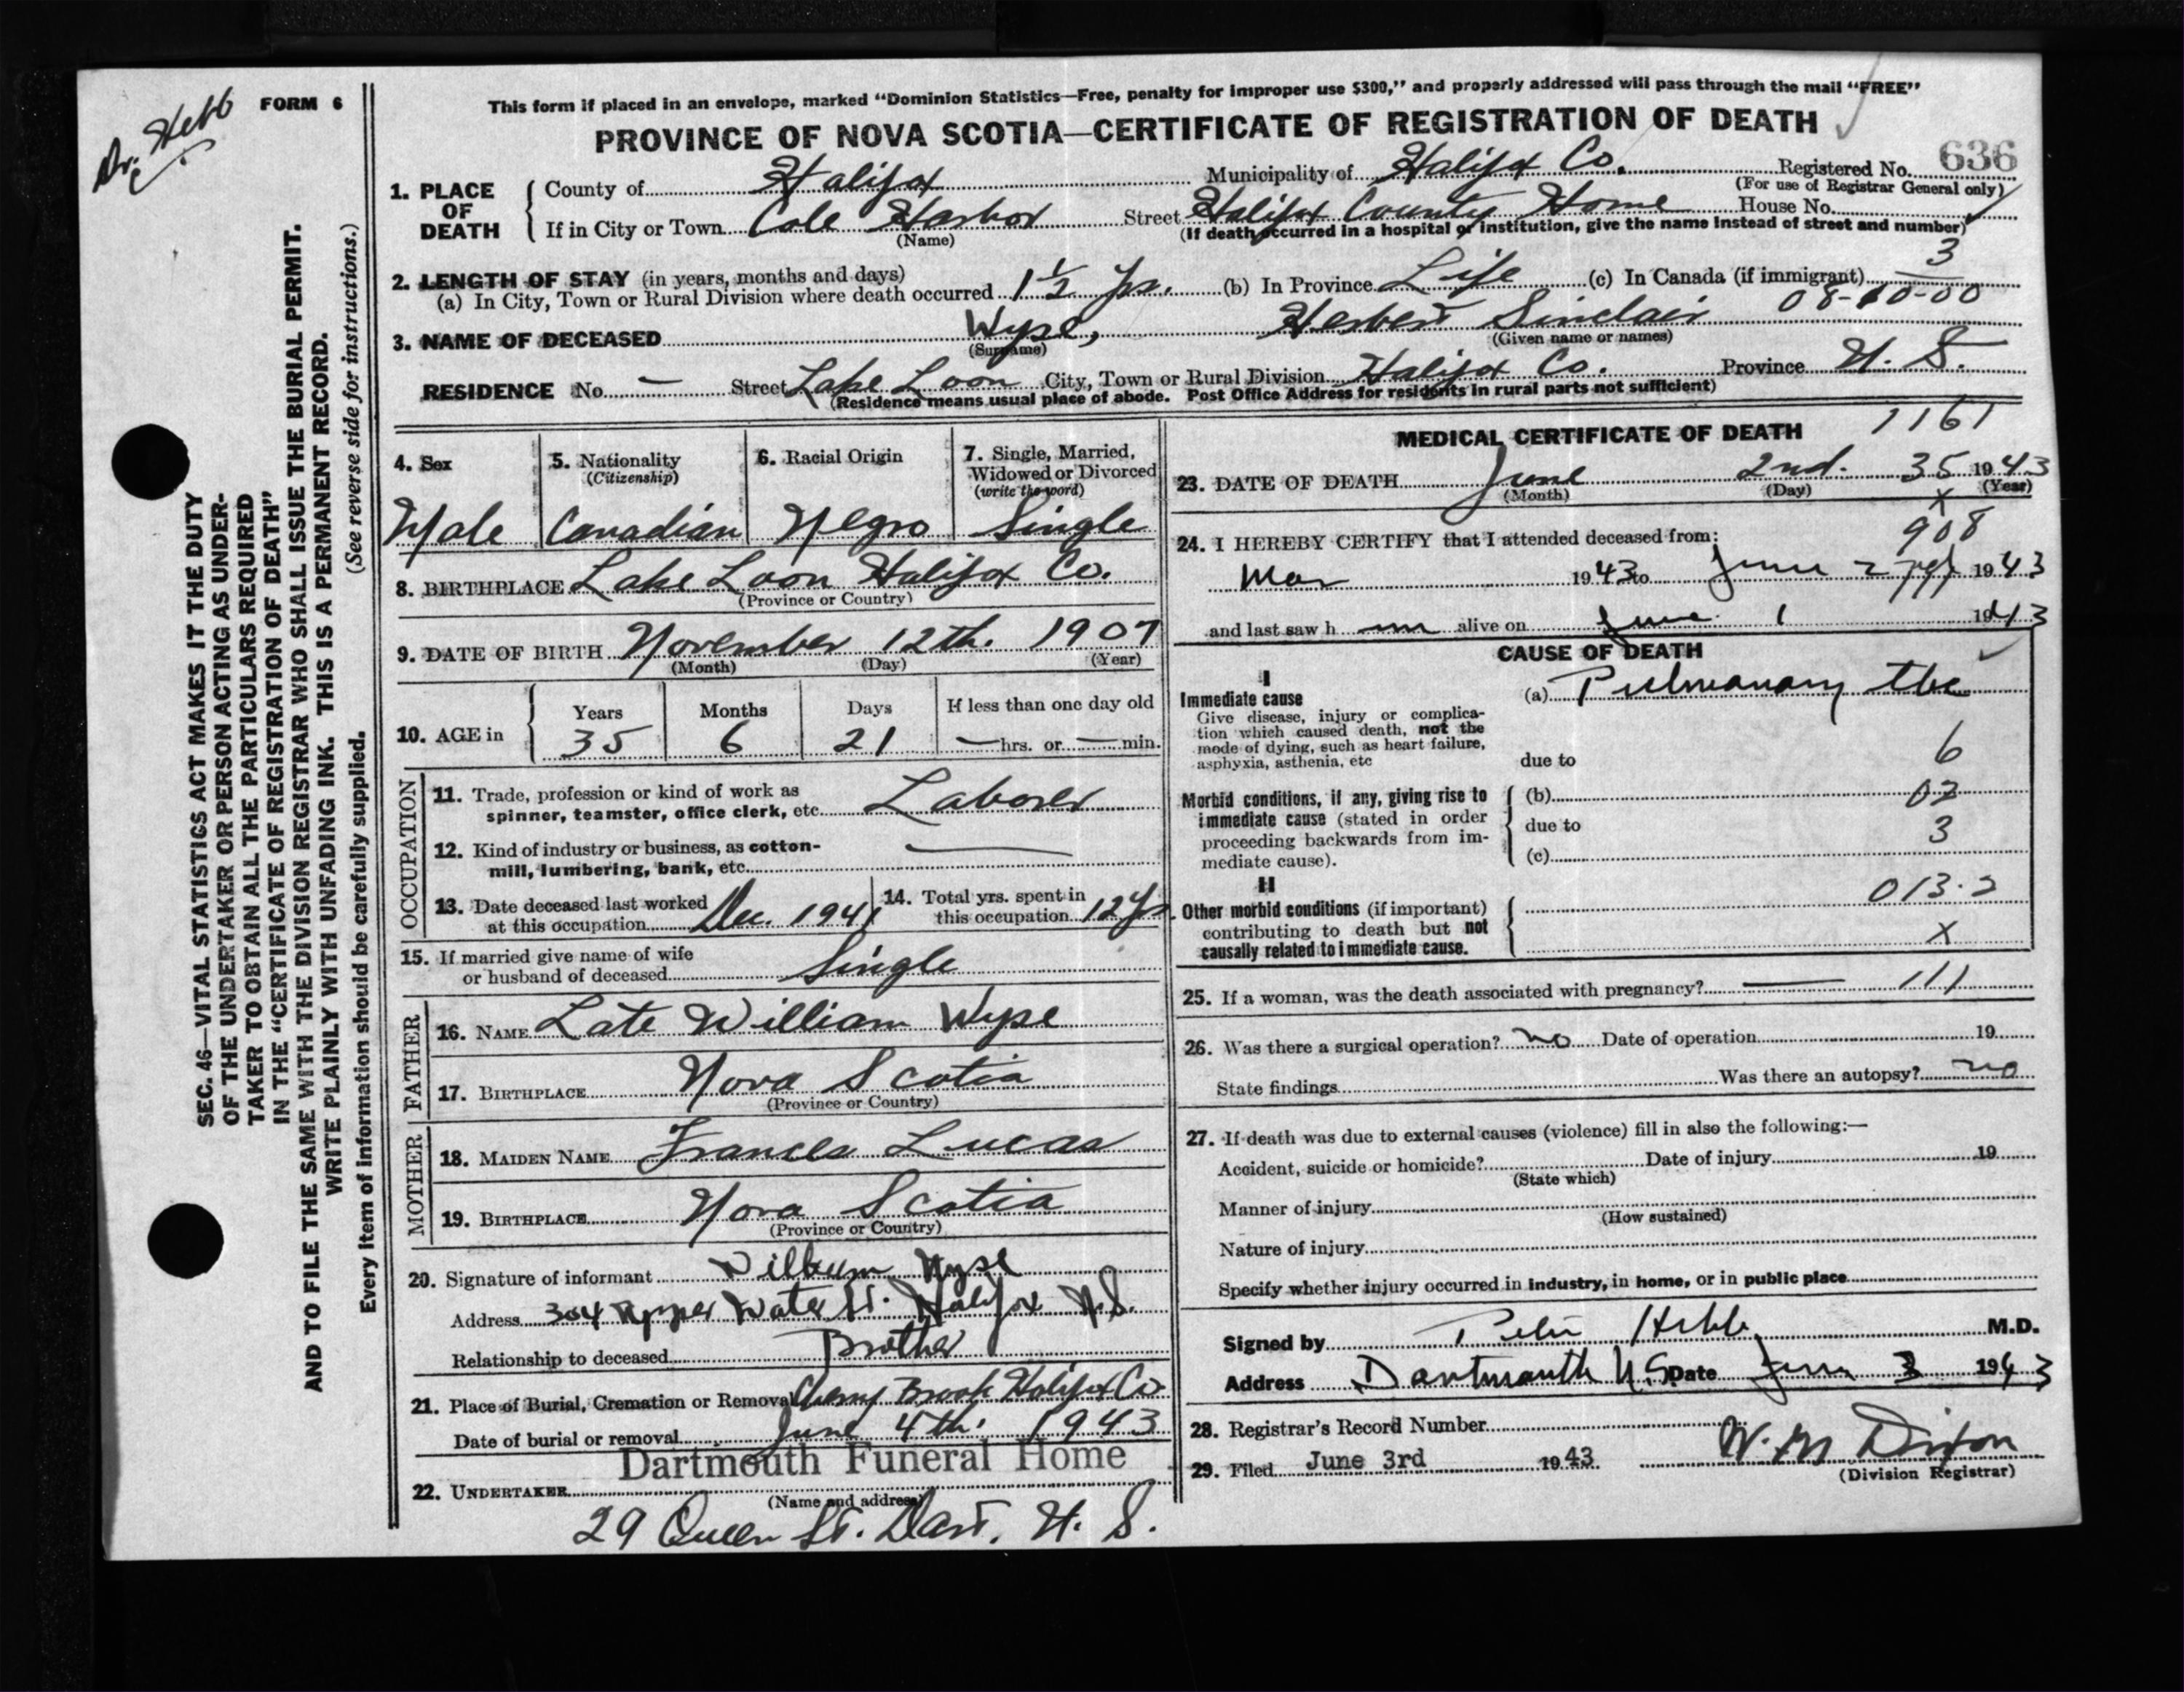 Dr. Hebb
FORM 6
This form if placed in an envelope, marked "Dominion Statistics—Free, penalty for improper use $300," and properly addressed will pass through the mail "FREE"
PROVINCE OF NOVA SCOTIA—CERTIFICATE OF REGISTRATION OF DEATH
636
1. PLACE OF DEATH County of Halifax Municipality of Halifax Co. Registered No.
(For use of Registrar General only)
If in City or Town Cole Harbor Street Halifax County Home House No.
(Name) (If death occurred in a hospital or institution, give the name instead of street and number)
2. LENGTH OF STAY (in years, months and days)
3
(a) In City, Town or Rural Division where death occurred 1½ yrs. (b) In Province Life (c) In Canada (if immigrant)
08-10-00
3. NAME OF DECEASED Wyse, Herbert Sinclair
(Surname) (Given name or names)
RESIDENCE No. — Street Lake Loon City, Town or Rural Division Halifax Co. Province N. S.
(Residence means usual place of abode. Post Office Address for residents in rural parts not sufficient)
4. Sex 5. Nationality 6. Racial Origin 7. Single, Married,
(Citizenship) Widowed or Divorced
(write the word)
Male Canadian Negro Single
8. BIRTHPLACE Lake Loon Halifax Co.
(Province or Country)
9. DATE OF BIRTH November 12th. 1907
(Month) (Day) (Year)
10. AGE in Years Months Days If less than one day old
35 6 21 — hrs. or — min.
OCCUPATION
11. Trade, profession or kind of work as
spinner, teamster, office clerk, etc. Laborer
12. Kind of industry or business, as cotton-
mill, lumbering, bank, etc. —
13. Date deceased last worked
at this occupation Dec. 1941
14. Total yrs. spent in
this occupation 12 yrs.
15. If married give name of wife
or husband of deceased Single
FATHER
16. NAME Late William Wyse
17. BIRTHPLACE Nova Scotia
(Province or Country)
MOTHER
18. MAIDEN NAME Frances Lucas
19. BIRTHPLACE Nova Scotia
(Province or Country)
20. Signature of informant Wyse
Address 304 Upper Water St. Halifax N.S.
Relationship to deceased Brother
21. Place of Burial, Cremation or Removal Cherry Brook Halifax Co
Date of burial or removal June 4th. 1943
Dartmouth Funeral Home
22. UNDERTAKER
(Name and address)
29 Queen St. Dart. N. S.
MEDICAL CERTIFICATE OF DEATH
1161
23. DATE OF DEATH June 2nd. 35 1943
(Month) (Day) (Year)
x
908
24. I HEREBY CERTIFY that I attended deceased from:
Mar 1943 to June 2 1943
and last saw h im alive on June 1 1943
CAUSE OF DEATH
I
Immediate cause
(a) Pulmonary tbc
Give disease, injury or complica-
tion which caused death, not the
mode of dying, such as heart failure,
asphyxia, asthenia, etc
due to
6
Morbid conditions, if any, giving rise to
immediate cause (stated in order
proceeding backwards from im-
mediate cause).
(b) 02
due to
3
(c)
II
013.2
Other morbid conditions (if important)
contributing to death but not
causally related to immediate cause.
X
25. If a woman, was the death associated with pregnancy? — 111
26. Was there a surgical operation? no Date of operation 19
State findings Was there an autopsy? no
27. If death was due to external causes (violence) fill in also the following:—
Accident, suicide or homicide? Date of injury 19
(State which)
Manner of injury
(How sustained)
Nature of injury
Specify whether injury occurred in industry, in home, or in public place
Signed by Hebb M.D.
Address Dartmouth N.S. Date June 3 1943
28. Registrar's Record Number
29. Filed June 3rd 1943 W. M Dixon
(Division Registrar)
SEC. 46—VITAL STATISTICS ACT MAKES IT THE DUTY
OF THE UNDERTAKER OR PERSON ACTING AS UNDER-
TAKER TO OBTAIN ALL THE PARTICULARS REQUIRED
IN THE "CERTIFICATE OF REGISTRATION OF DEATH"
AND TO FILE THE SAME WITH THE DIVISION REGISTRAR WHO SHALL ISSUE THE BURIAL PERMIT.
WRITE PLAINLY WITH UNFADING INK. THIS IS A PERMANENT RECORD.
(See reverse side for instructions.)
Every item of information should be carefully supplied.